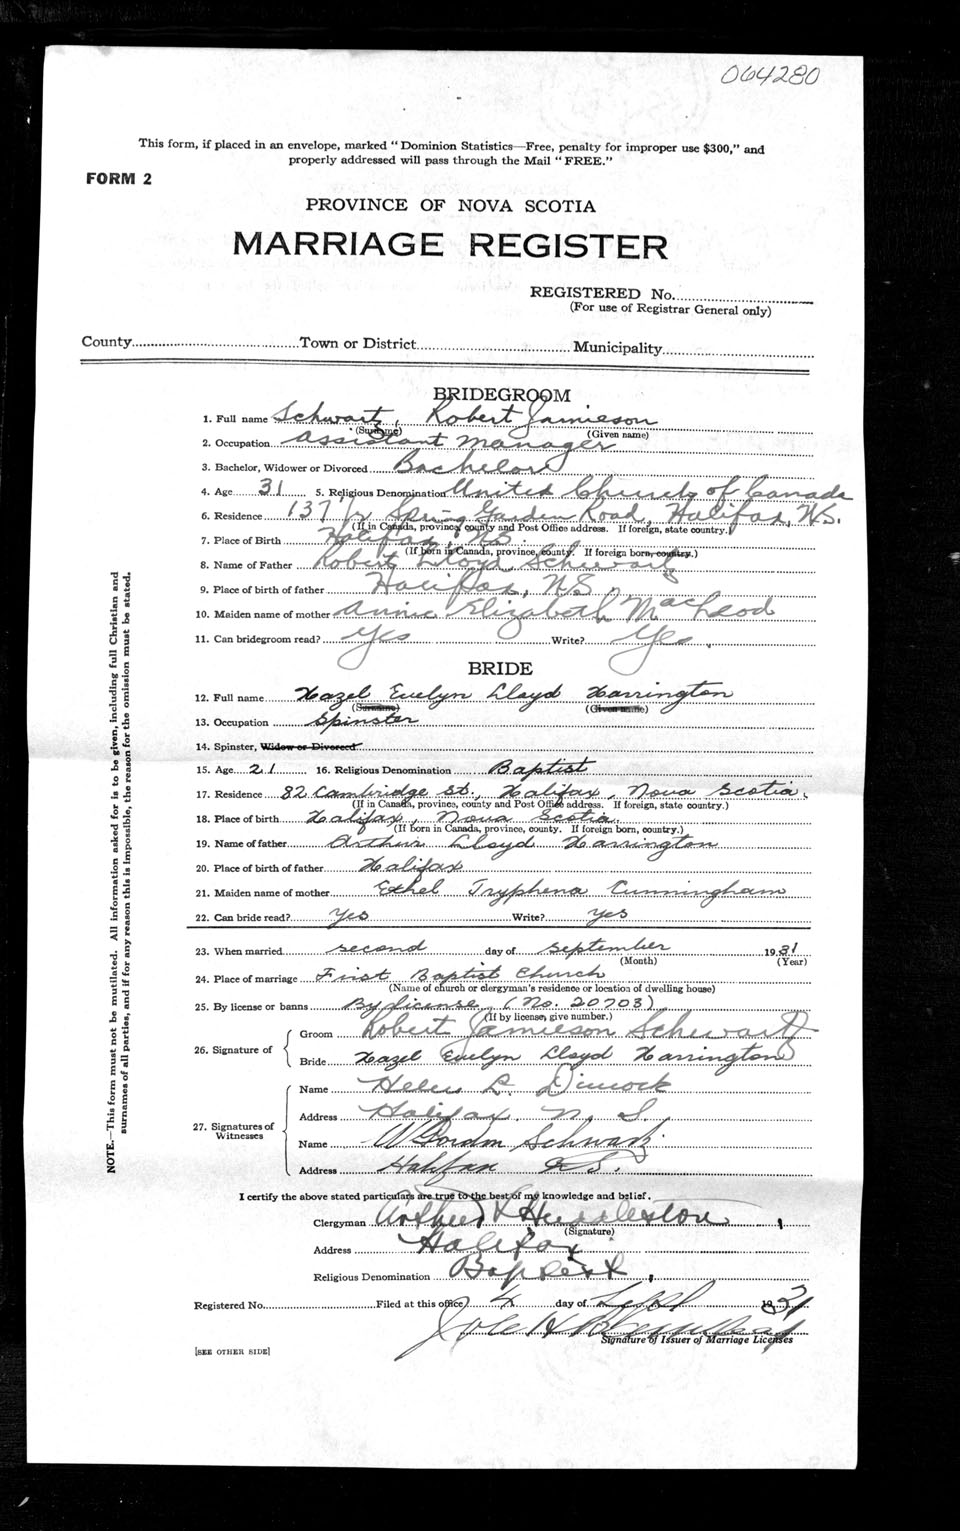 064280
This form, if placed in an envelope, marked "Dominion Statistics—Free, penalty for improper use $300," and
properly addressed will pass through the Mail "FREE."
FORM 2
PROVINCE OF NOVA SCOTIA
MARRIAGE REGISTER
REGISTERED No.
(For use of Registrar General only)
County Town or District Municipality
BRIDEGROOM
1. Full name Schwartz, Robert Jamieson
(Surname) (Given name)
2. Occupation Assistant Manager
3. Bachelor, Widower or Divorced Bachelor
4. Age 31 5. Religious Denomination United Church of Canada
6. Residence 137 1/2 Spring Garden Road, Halifax, N.S.
(If in Canada, province, county and Post Office address. If foreign, state country.)
7. Place of Birth Halifax, N.S.
(If born in Canada, province, county. If foreign born, country.)
8. Name of Father Robert Lloyd Schwartz
9. Place of birth of father Halifax, N.S.
10. Maiden name of mother Annie Elizabeth MacLeod
11. Can bridegroom read? Yes Write? Yes
BRIDE
12. Full name Hazel Evelyn Lloyd Harrington
(Surname) (Given name)
13. Occupation Spinster
14. Spinster, Widow or Divorced
15. Age 21 16. Religious Denomination Baptist
17. Residence 82 Cambridge St., Halifax, Nova Scotia.
(If in Canada, province, county and Post Office address. If foreign, state country.)
18. Place of birth Halifax, Nova Scotia.
(If born in Canada, province, county. If foreign born, country.)
19. Name of father Arthur Lloyd Harrington
20. Place of birth of father Halifax
21. Maiden name of mother Ethel Tryphena Cunningham
22. Can bride read? Yes Write? Yes
23. When married second day of September 1931
(Month) (Year)
24. Place of marriage First Baptist Church
(Name of church or clergyman's residence or location of dwelling house)
25. By license or banns By license (No. 20703)
(If by license, give number.)
26. Signature of
Groom Robert Jamieson Schwartz
Bride Hazel Evelyn Lloyd Harrington
27. Signatures of Witnesses
Name Helen L. Dimock
Address Halifax, N.S.
Name W Gordon Schwartz
Address Halifax N.S.
I certify the above stated particulars are true to the best of my knowledge and belief.
Clergyman Arthur
(Signature)
Address Halifax
Religious Denomination Baptist
Registered No. Filed at this office 4 day of Sept 1931
Signature of Issuer of Marriage Licenses
[SEE OTHER SIDE]
NOTE.—This form must not be mutilated. All information asked for is to be given, including full Christian and
surnames of all parties, and if for any reason this is impossible, the reason for the omission must be stated.